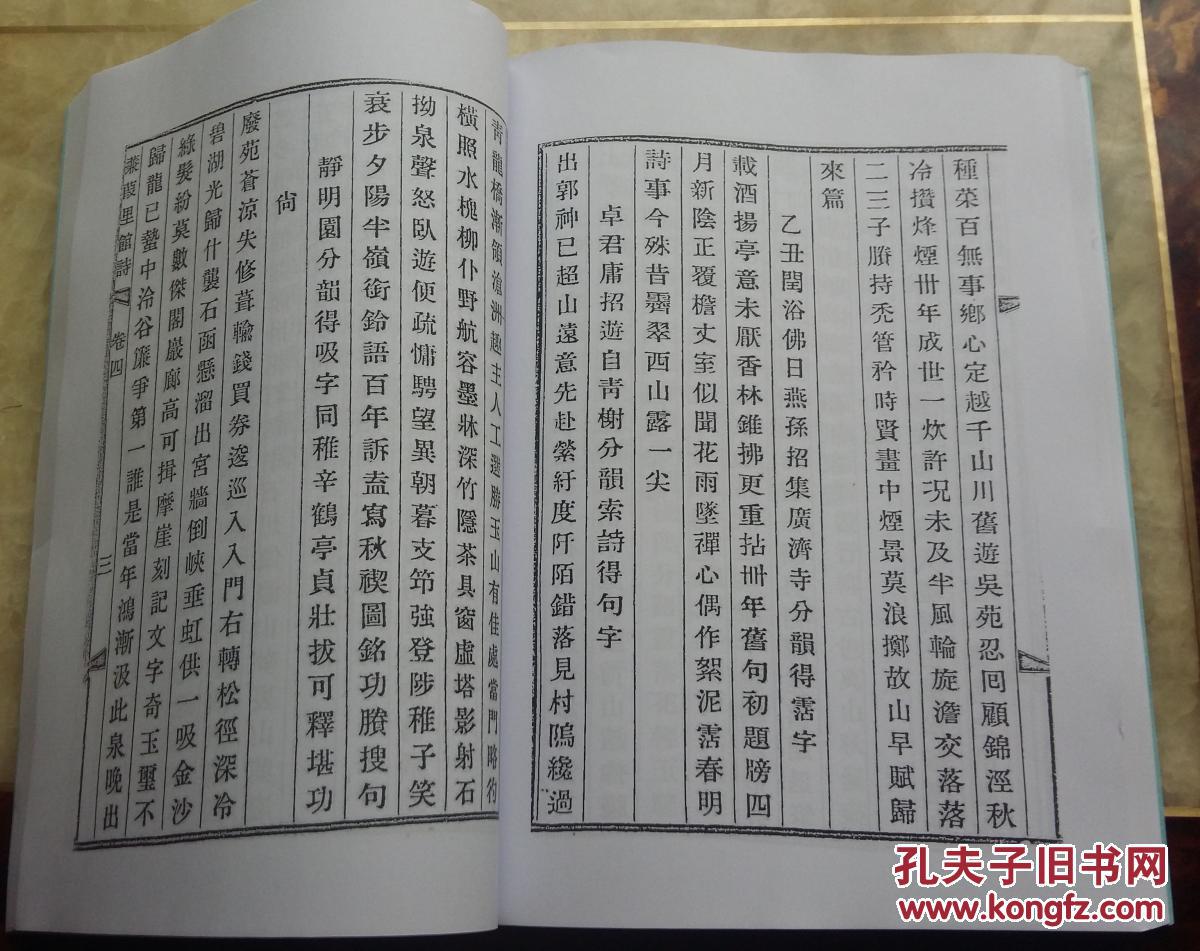 種菜百無事鄉心定越千山川舊遊吳苑忍囘顧錦涇秋
冷攢烽煙卅年成世一炊許况未及半風輪旋澹交落落
二三子賸持禿管矜時賢畫中煙景莫浪擲故山早賦歸
來篇
乙丑閏浴佛日燕孫招集廣濟寺分韻得霑字
載酒揚亭意未厭香林錐拂更重拈卌年舊句初題牓四
月新陰正覆檐丈室似聞花雨墜禪心偶作絮泥霑春明
詩事今殊昔霽翠西山露一尖
卓君庸招遊自靑榭分韻索詩得句字
出郭神已超山遠意先赴縈紆度阡陌錯落見村隖纔過
靑龍橋漸領滄洲趣主人工選勝玉山有佳處當門略彴
橫照水槐柳仆野航容墨牀深竹隱茶具窗虛塔影射石
拗泉聲怒臥遊便疏慵騁望異朝暮支笻強登陟稚子笑
衰步夕陽半嶺銜鈴語百年訴盍寫秋禊圖銘功賸搜句
靜明園分韻得吸字同稚辛鶴亭貞壯拔可釋堪功
尙
廢苑蒼涼失修葺輸錢買券逡巡入入門右轉松徑深冷
碧湖光歸什襲石函懸溜出宮牆倒峽垂虹供一吸金沙
綠髮紛莫數傑閣巖廊高可揖摩崖刻記文字奇玉璽不
歸龍已蟄中泠谷簾爭第一誰是當年鴻漸汲此泉晚出
里館詩 卷四 三
孔夫子旧书网
www.kongfz.com